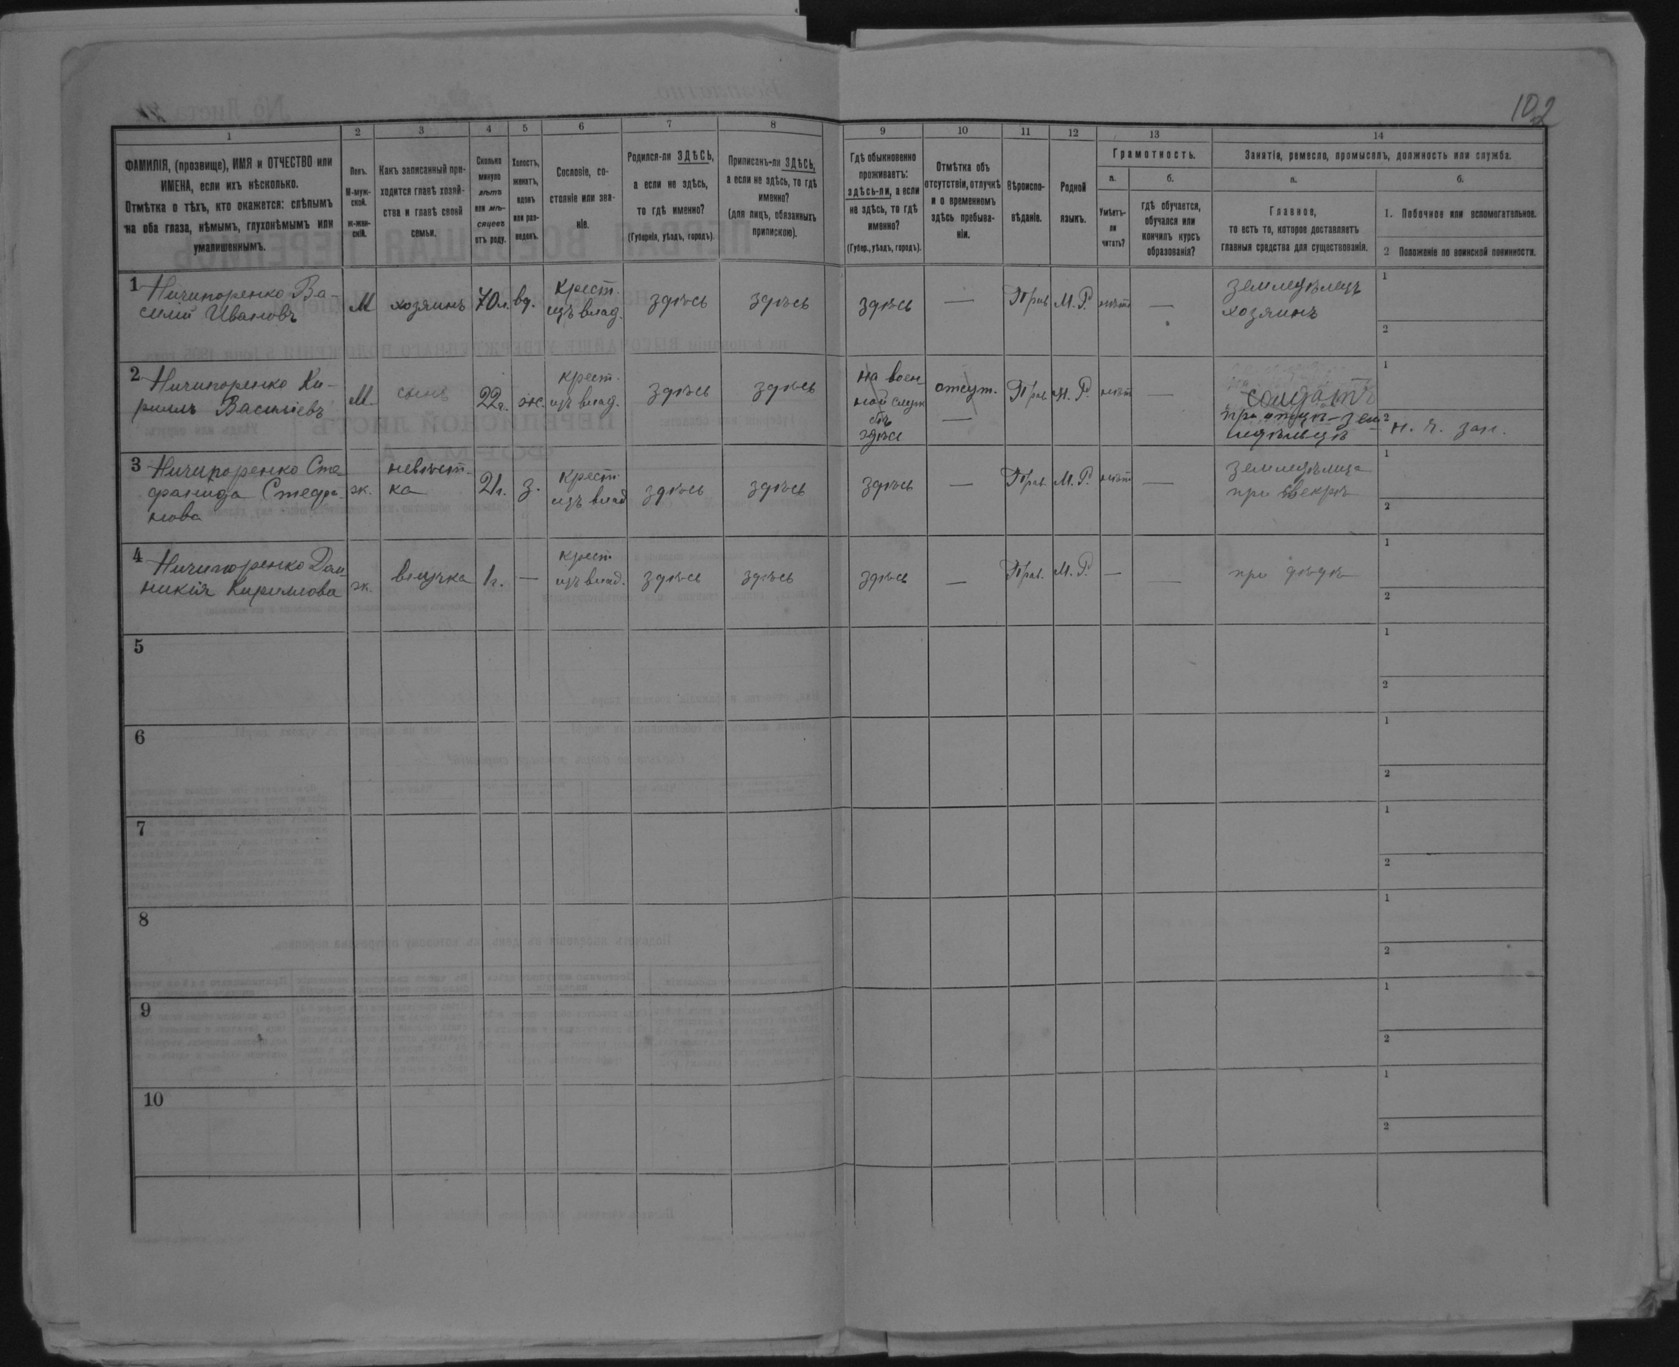 102
1
2
3
4
5
6
7
8
9
10
11
12
13
14
ФАМИЛІЯ, (прозвище), ИМЯ и ОТЧЕСТВО или
ИМЕНА, если ихъ нѣсколько.
Отмѣтка о тѣхъ, кто окажется: слѣпымъ
на оба глаза, нѣмымъ, глухонѣмымъ или
умалишеннымъ.
Полъ.
М-муж-
ской.
ж-жен-
скій.
Какъ записанный при-
ходится главѣ хозяй-
ства и главѣ своей
семьи.
Сколько
минуло
лѣтъ
или мѣ-
сяцевъ
отъ роду.
Холостъ,
женатъ,
вдовъ
или раз-
веденъ.
Сословіе, со-
стояніе или зва-
ніе.
Родился-ли ЗДѢСЬ,
а если не здѣсь,
то гдѣ именно?
(Губернія, уѣздъ, городъ).
Приписанъ-ли ЗДѢСЬ,
а если не здѣсь, то гдѣ
именно?
(для лицъ, обязанныхъ
припискою).
Гдѣ обыкновенно
проживаетъ:
здѣсь-ли, а если
не здѣсь, то гдѣ
именно?
(Губер., уѣздъ, городъ).
Отмѣтка объ
отсутствіи, отлучкѣ
и о временномъ
здѣсь пребыва-
ніи.
Вѣроиспо-
вѣданіе.
Родной
языкъ.
Грамотность.
а.
б.
Умѣетъ-
ли
читать?
гдѣ обучается,
обучался или
кончилъ курсъ
образованія?
Занятіе, ремесло, промыселъ, должность или служба.
а.
б.
Главное,
то есть то, которое доставляетъ
главныя средства для существованія.
1. Побочное или вспомогательное.
2 Положеніе по воинской повинности.
1 Ничипоренко Ва-
силій Ивановъ
М
хозяинъ
70л.
вд.
крест.
изъ влад.
здѣсь
здѣсь
здѣсь
—
Прав.
М.Р.
нѣтъ
—
земледѣлецъ
хозяинъ
1
2
2 Ничипоренко Ки-
риллъ Васильевъ
М.
сынъ
22г.
ж.
крест.
изъ влад.
здѣсь
здѣсь
на воен
ной служ
бѣ
здѣсь
отсут.
—
Прав.
М.Р.
нѣтъ
—
солдатъ
при отцѣ-зем
ледѣлецъ
1
2 н. ч. зап.
3 Ничипоренко Сте
фанида Стефа-
нова
ж.
невѣст-
ка
21г.
з.
крест.
изъ влад
здѣсь
здѣсь
здѣсь
—
Прав.
М.Р.
нѣтъ
—
земледѣлица
при свекрѣ
1
2
4 Ничипоренко Дом
никія Кириллова
ж.
внучка
1г.
—
крест
изъ влад.
здѣсь
здѣсь
здѣсь
—
Прав.
М.Р.
—
—
при дѣдѣ
1
2
5
1
2
6
1
2
7
1
2
8
1
2
9
1
2
10
1
2